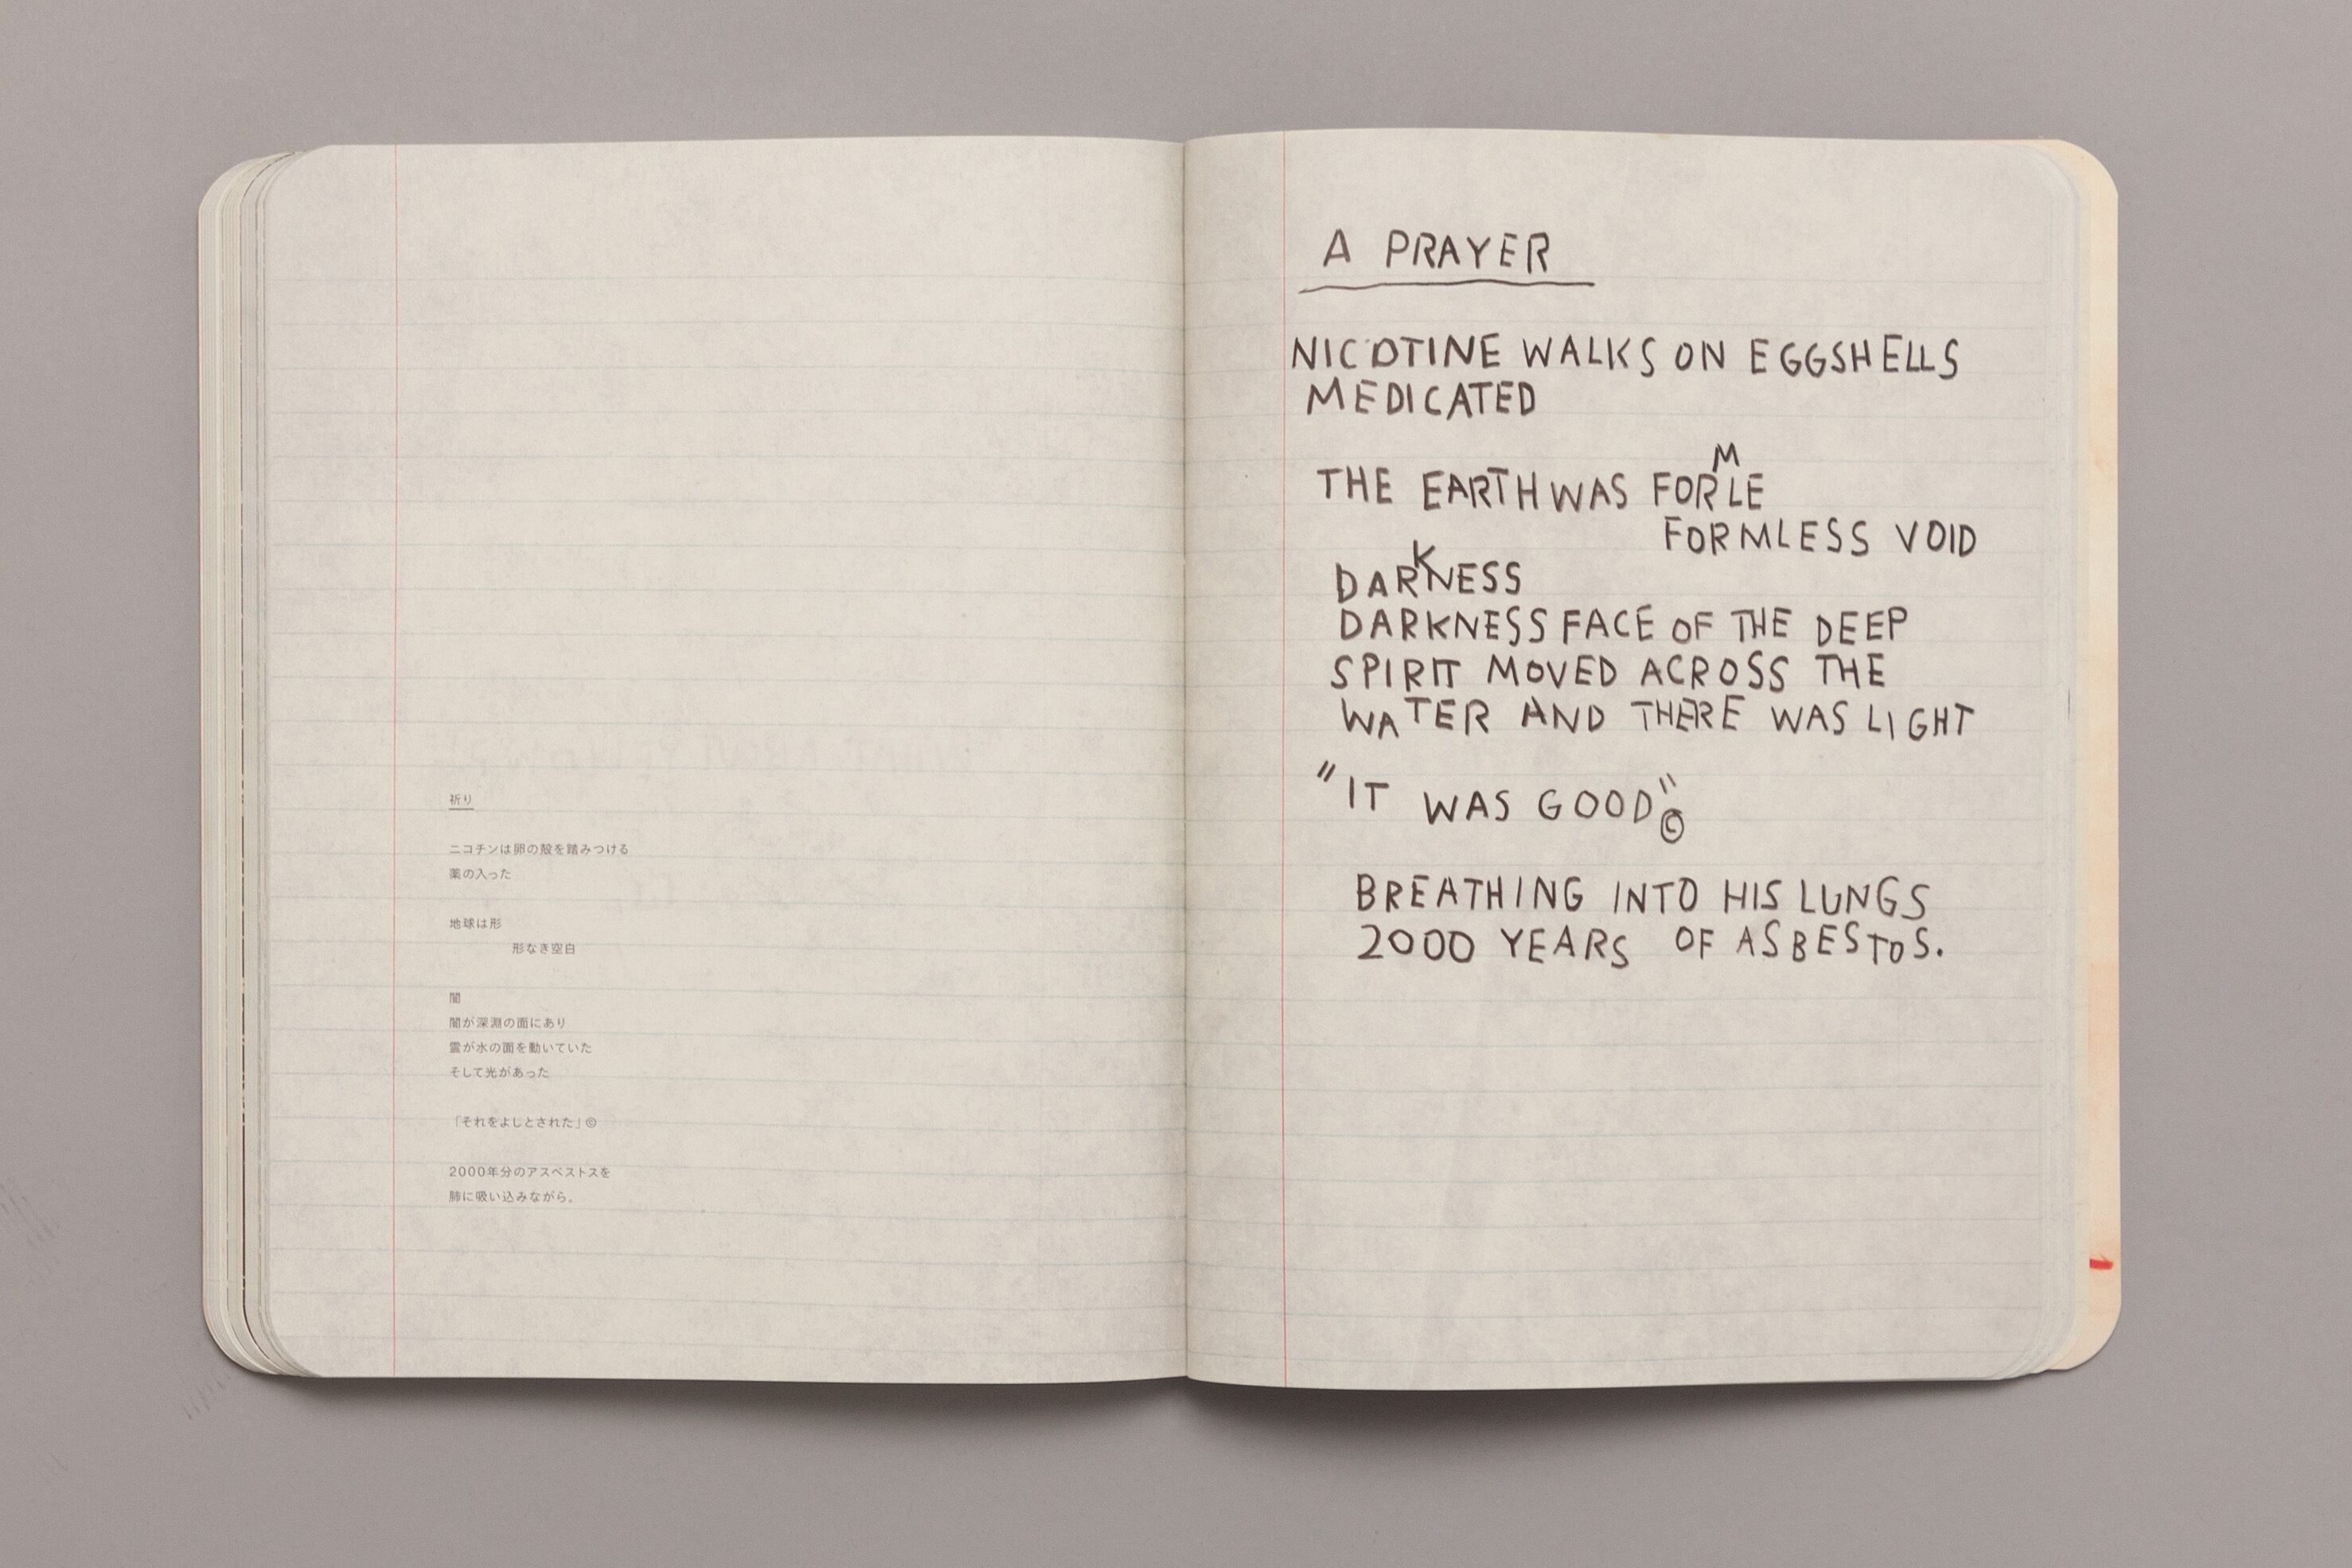 祈り
ニコチンは卵の殻を踏みつける
薬の入った
地球は形
形なき空白
闇
闇が深淵の面にあり
霊が水の面を動いていた
そして光があった
「それをよしとされた」©
2000年分のアスベストスを
肺に吸い込みながら。
A PRAYER
NICOTINE WALKS ON EGGSHELLS
MEDICATED
THE EARTH WAS FORMLE
FORMLESS VOID
DARKNESS
DARKNESS FACE OF THE DEEP
SPIRIT MOVED ACROSS THE
WATER AND THERE WAS LIGHT
"IT WAS GOOD"©
BREATHING INTO HIS LUNGS
2000 YEARS OF ASBESTOS.